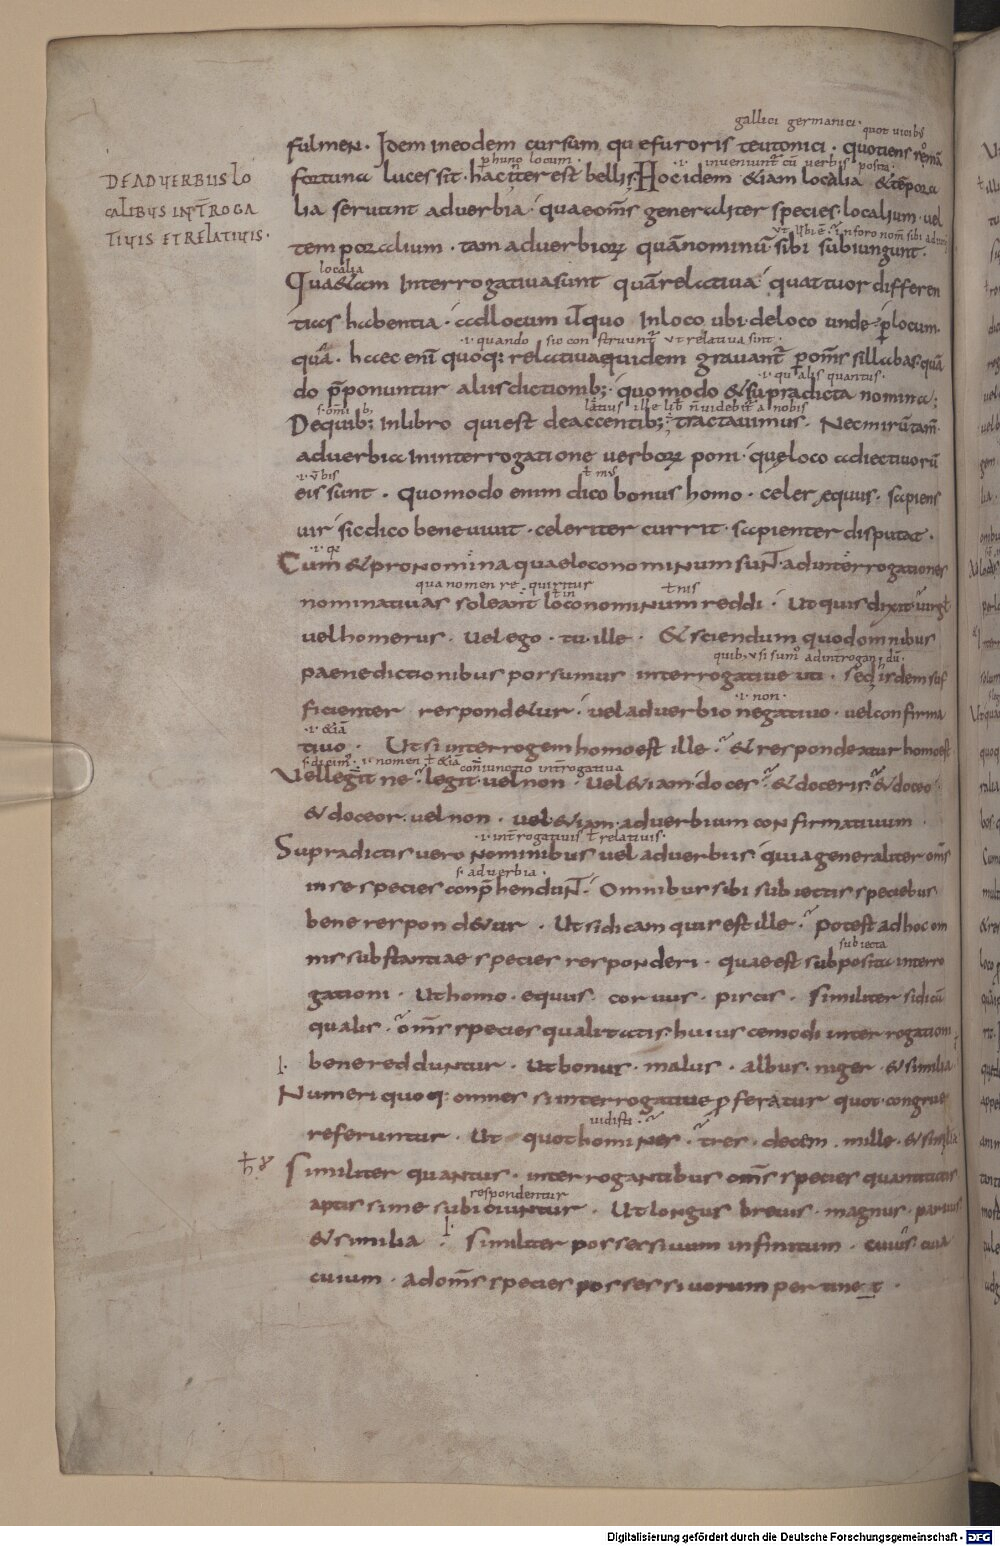 gallici germanici · quot vicib;
fulmen · Idem in eodem cursum quę furoris teutonici · quotiens romã
p hunc locum · ·i· inveniunt̃ cũ verbis posita ·
fortuna luces sit · hac iter est bellis; Hoc idem &iam localia &tẽpora
DE ADVERBIIS LO
CALIBVS INT̃ROGA
TIVIS ET RELATIVIS ·
lia servant adverbia · quae om̃s generaliter species · localium · vel
temporalium · tam adverbioꝝ quã nominũ sibi subiungunt ·
localia
Qua&iam Interrogativa sunt quã relativa quattuor differen
tias habentia · ad locum ut̃ quo In loco ubi · de loco unde · p locum ·
·i· quando sic construunt̃ ut relativa sint ·
quã · haec eni quoq; relativa quidem gravant̃ p om̃s sillabas · quã
·i· qualis quantus ·
do p̃ponuntur aliis dictionib; · quomodo & supradicta nomina;
s· omib; latius ille lib ñ videbit̃ a nobis
De quib; In libro qui est de accentib; tractavimus · Nec mirũ tam
adverbia In interrogatione verboꝝ poni · quę loco adiectivorũ
·i· v̄bis
eis sunt · Quomodo enim dico bonus homo · celer equus · sapiens
vir sic dico bene vivit · celeriter currit · sapienter disputat ·
Cum & pronomina quae loco nominum sunt · ad interrogationes
qua nomen re quiritus
nominativas soleant loco nominum reddi · Ut quis dixit virgł
vel homerus · Vel ego · tu · ille · & sciendum quod omnibus
paene dictionibus possumus interrogative uti · sed isdem suf
·i· non ·
ficienter respond&ur · vel adverbio negativo · vel confirma
·i· &iã
tivo · Ut si interrogem homo est ille · & respondeatur homo est
coniunctio int̃rogativa
Vel legit ne · legit · vel non · Vel &iam doces · & doceris · & doceo ·
& doceor · vel non · vel &iam adverbium confirmativum
·i· int̃rogativis ł relativis ·
Supradictis vero nominibus vel adverbiis · quia generaliter om̃s
s· adverbia ·
in se species conp̃hendunt · Omnibus sibi subiectis speciebus
bene respond&ur · Ut si dicam quis est ille · potest ad hoc om
subiecta
nis substantiae species responderi · quae est subposita interro
gationi · Ut homo · equus · corvus · piscis · Similiter si dicã
qualis · om̃s species qualitatis huiuscemodi interrogationi
bene redduntur · Ut bonus · malus · albus · niger · & similia ·
Numeri quoq; omnes si interrogative pferatur quot · congrue
vidisti ·
referuntur · Ut quot homines · tres · decem · mille · & similia
Similiter quantus · interrogantibus om̃s species quantitatis
respondentur
aptissime subiciuntur · Ut longus brevis · magnus · parvus
& similia · Similiter possessivum infinitum · cuius cuia
cuium · ad om̃s species possessivorum pertinet ·
Digitalisierung gefördert durch die Deutsche Forschungsgemeinschaft - DFG